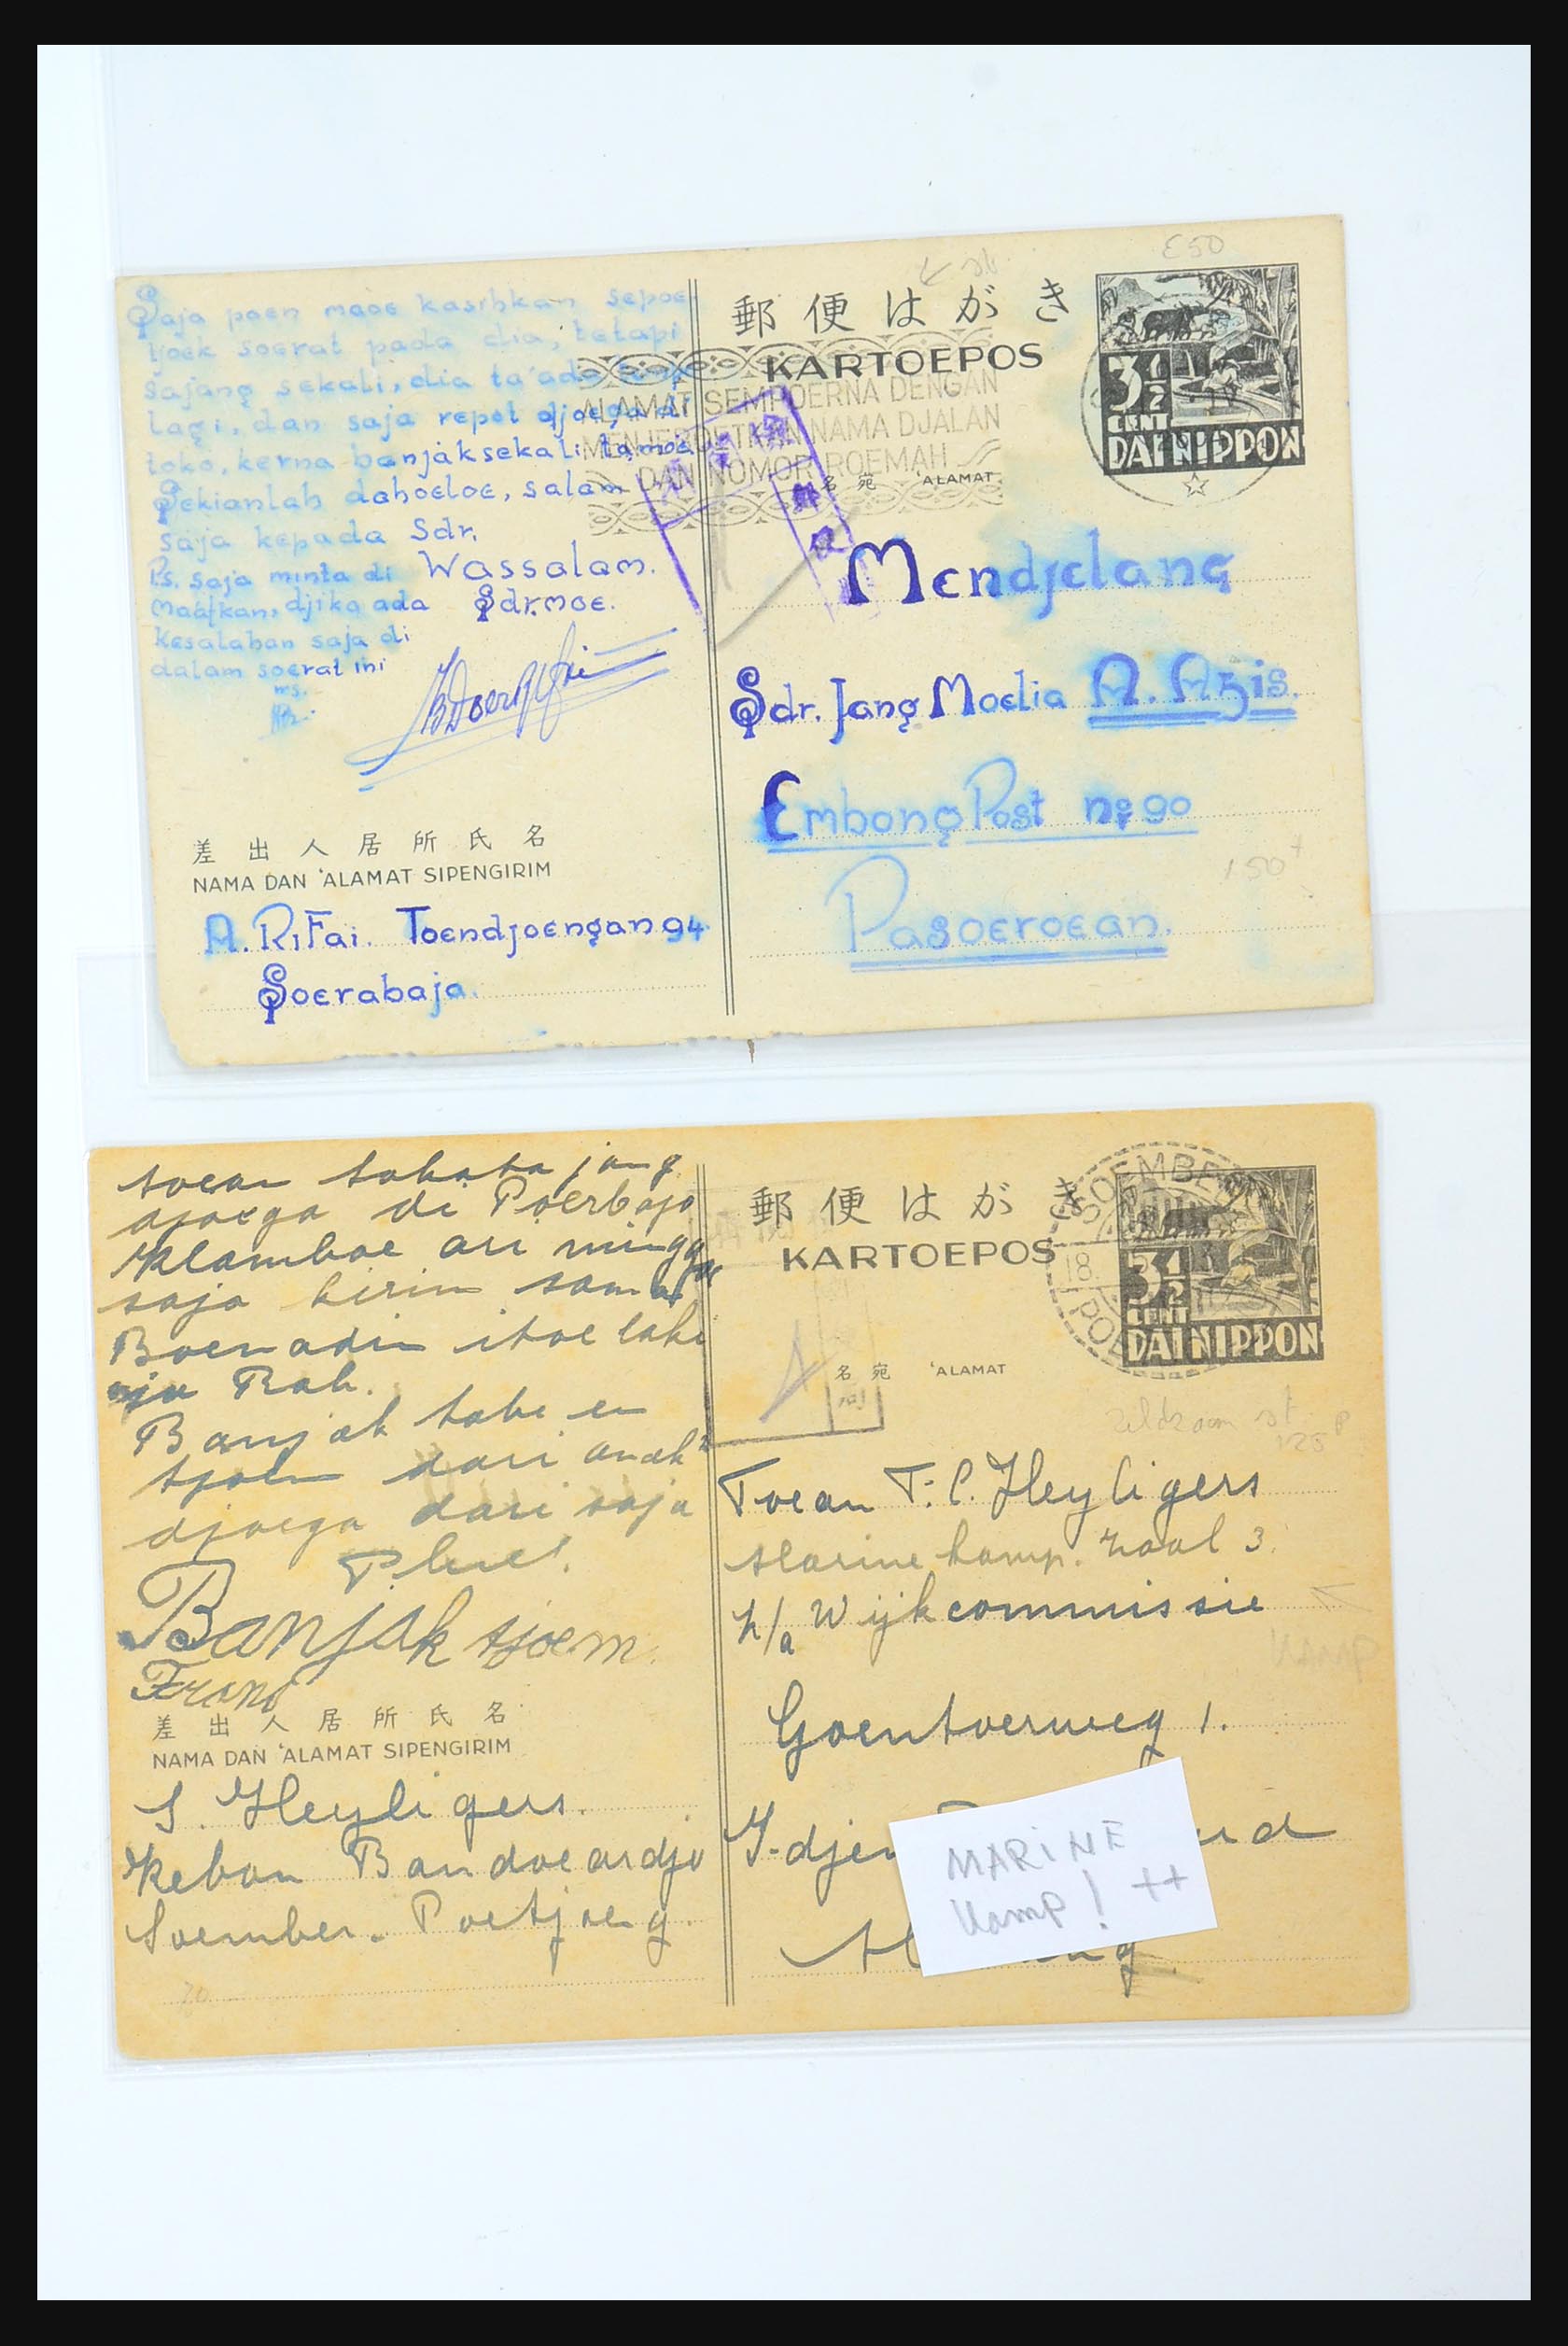 Saja poen maoe kasihkan sepoe-
tjoek soerat pada dia, tetapi
sajang sekali, dia ta'ada
lagi, dan saja repot djoega di
toko, kerna banjak sekali tamoe
Sekianlah dahoeloe, salam
saja kepada Sdr.
Wassalam.
P.s. saja minta di
maafkan, djika ada
Sdr.moe.
kesalahan saja di
dalam soerat ini
ws.
差出人居所氏名
NAMA DAN 'ALAMAT SIPENGIRIM
A. RiFai. Toendjoengan 94.
Soerabaja.
E50
郵便はがき
KARTOEPOS
ALAMAT SEMPOERNA DENGAN
MENJEBOETKAN NAMA DJALAN
DAN NOMOR ROEMAH
名宛 'ALAMAT
3 1/2
CENT
DAI NIPPON
Mendjelang
Sdr. Jang Moelia A. Azis.
Embong Post no 90
150+
Pasoeroean.
toean tabata jang
djoega di Poerbojo
Klamboe ari minggoe
saja kirim sama
Boenadin itoe laki
nja Bah.
Banjak tabe en
tjoem dari anak2
djoega dari saja
Banjak tjoem.
Frans
差出人居所氏名
NAMA DAN 'ALAMAT SIPENGIRIM
S. Heyligers.
Kebon Bandoeardjo
Soember-Poetjoeng.
70
郵便はがき
KARTOEPOS
名宛 'ALAMAT
SOEMBER
18.
POE
3 1/2
CENT
DAI NIPPON
zeldzaam st.
125
Toean T. C. Heyligers
Marine kamp. zaal 3.
p/a Wijkcommissie
kamp
Goentoerweg 1.
MARINE
kamp! ++